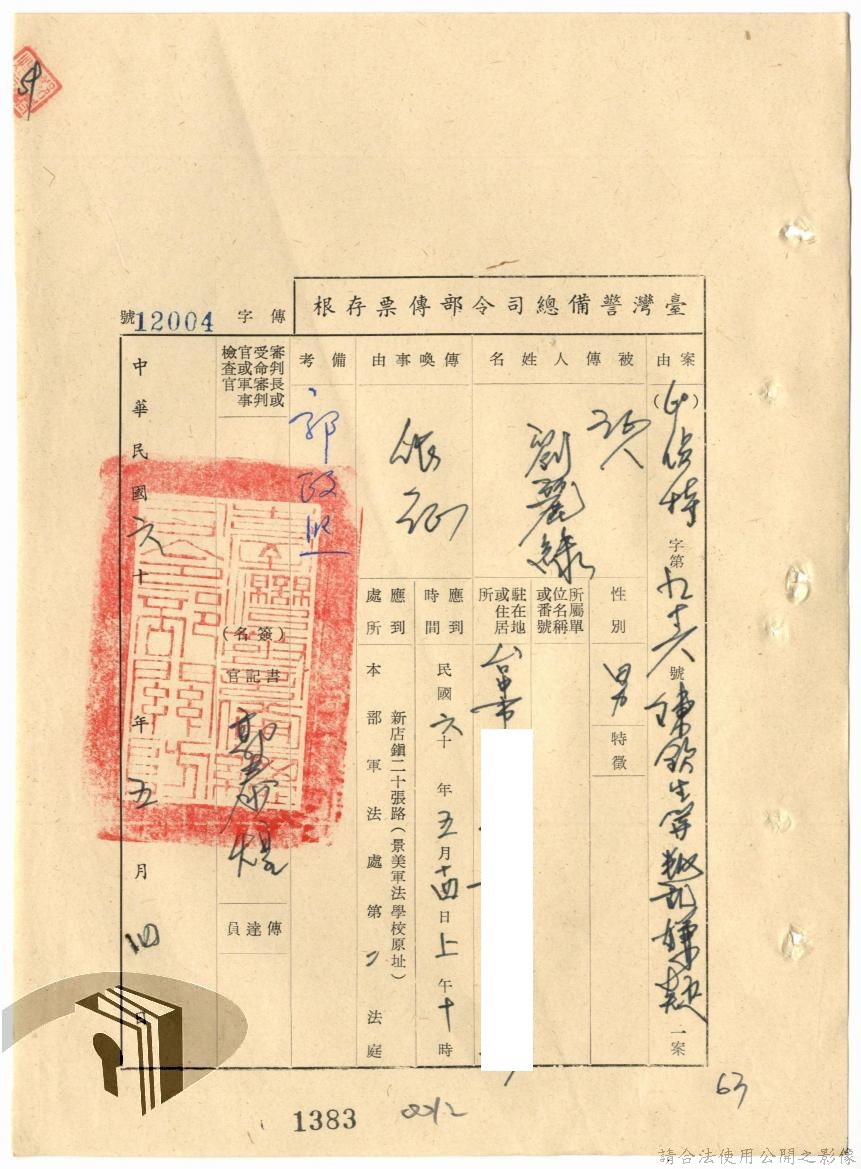 臺灣警備總司令部傳票存根
傳字
12004號
案由
()
字第
號陳欽生等叛亂嫌疑一案
被傳人姓名
劉麗綠
性別
男
特徵
所屬單位名稱或番號
駐在地或住居所
台中市
傳喚事由
作証
應到時間
民國六十年五月十四日上午十時
應到處所
新店鎮二十張路(景美軍法學校原址)
本部軍法處第二法庭
備考
郭政熙
審判長或受命審判官或軍事檢查官
(簽名)
書記官
傳達員
中華民國六十年五月四日
1383
0012
63
請合法使用公開之影像